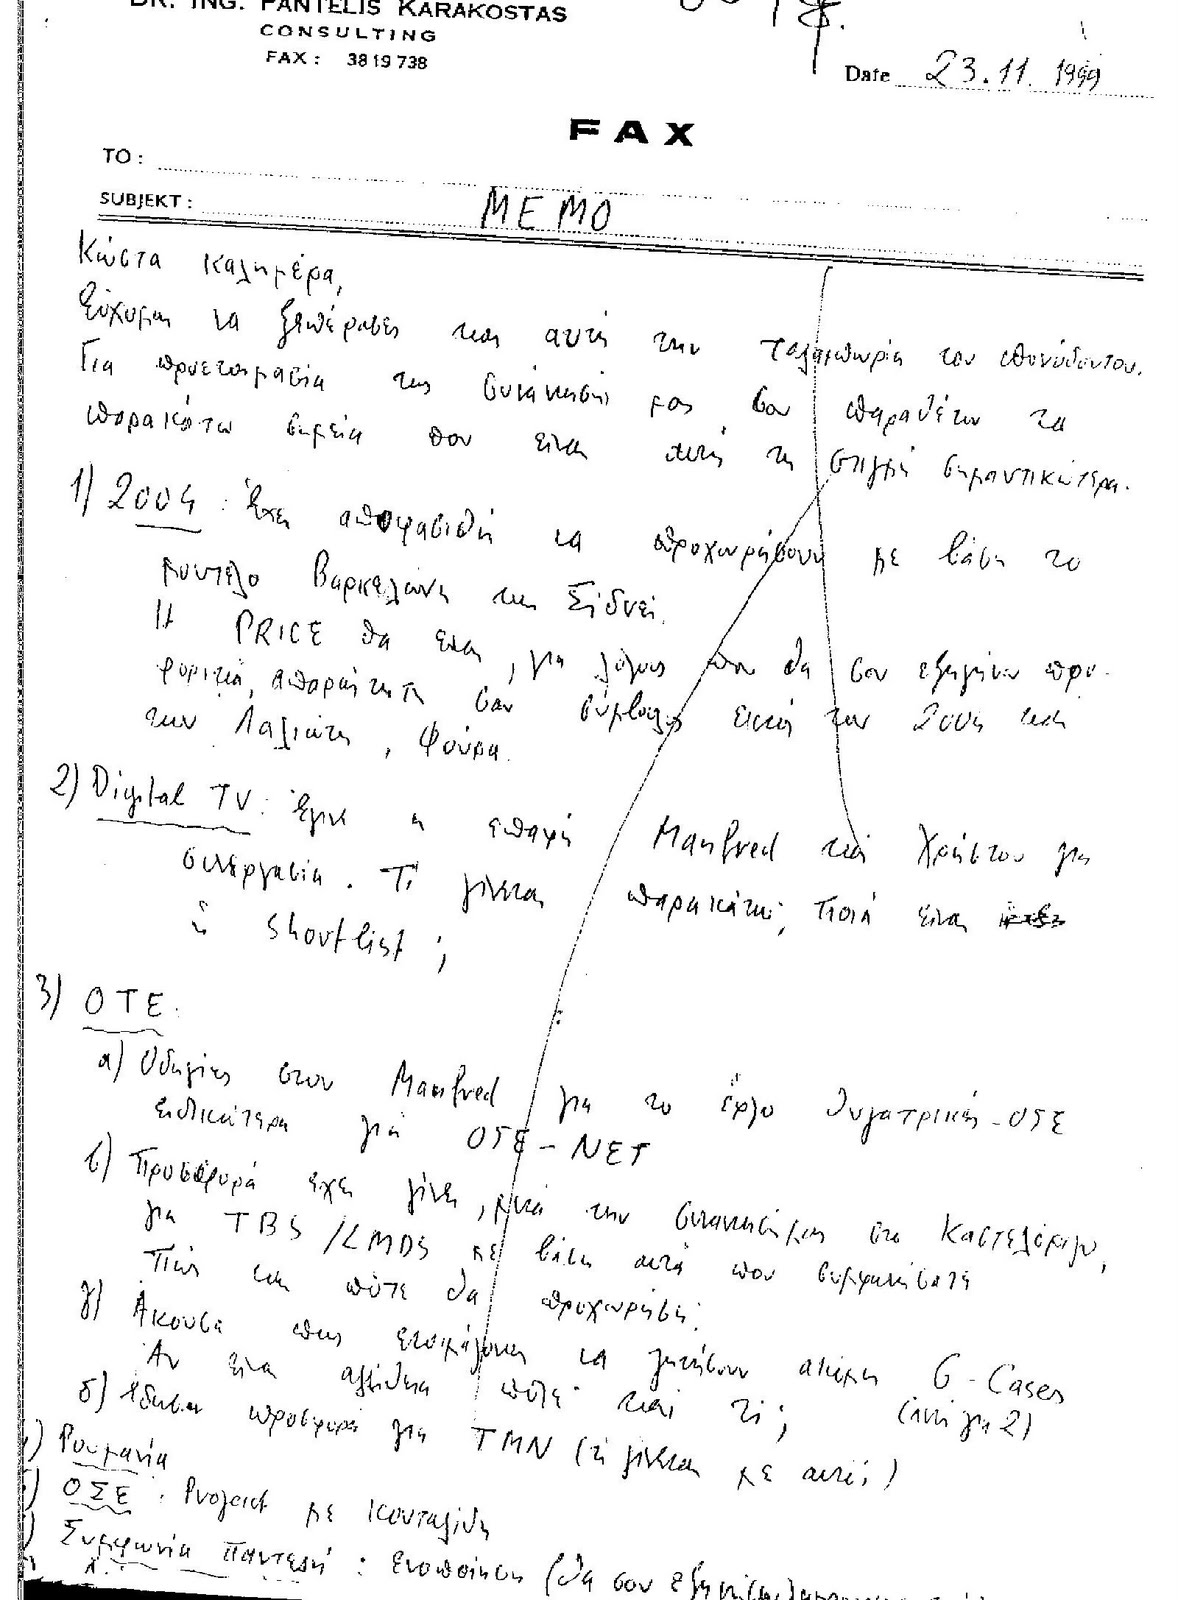 DR. ING. PANTELIS KARAKOSTAS
CONSULTING
FAX : 3819738
Date 23.11.1999
FAX
TO :
SUBJEKT : MEMO
Κώστα καλημέρα,
Εύχομαι να ξεπέρασες και αυτή την ταλαιπωρία του
Για προετοιμασία της συνάντησής μας σου παραθέτω τα
παρακάτω σημεία που είναι αυτή τη στιγμή σημαντικώτερα.
1) 2004 : Έχει αποφασισθή να προχωρήσουν με βάση το
μοντέλο Βαρκελώνη και Σίδνεϊ.
Η PRICE θα είναι, για λόγους που θα σου εξηγήσω προ-
φορικά, απαραίτητη σαν σύμβουλος 2004 και
των Λαλιώτη, Φούρα.
2) Digital TV : Έγινε η επαφή Manfred και Χρήστου για
συνεργασία. Τί γίνεται παρακάτω; Ποιά είναι
η shortlist ;
3) ΟΤΕ.
α) Οδηγίες στον Manfred για το έργο θυγατρικές-ΟΤΕ
ειδικώτερα γιά ΟΤΕ-ΝΕΤ
β) Προσφορά έχει γίνει, μετά την συνάντησή μας στο Καστελόριζο,
για TBS /LMDS με βάση αυτά που συμφωνήσατε
Πώς και πότε θα προχωρήσει;
γ) Άκουσα πως ετοιμάζονται να ζητήσουν ακόμη 6 - Cases
Αν είναι αλήθεια πότε και τί; (αντί για 2)
δ) έδωσαν προσφορά για TMN (τί γίνεται με αυτή;)
) Ρουμανία
) ΟΣΕ : Project με Κουταλίδη
) Συμφωνία Παντελή : Ενοποίηση (θα σου εξηγήσω